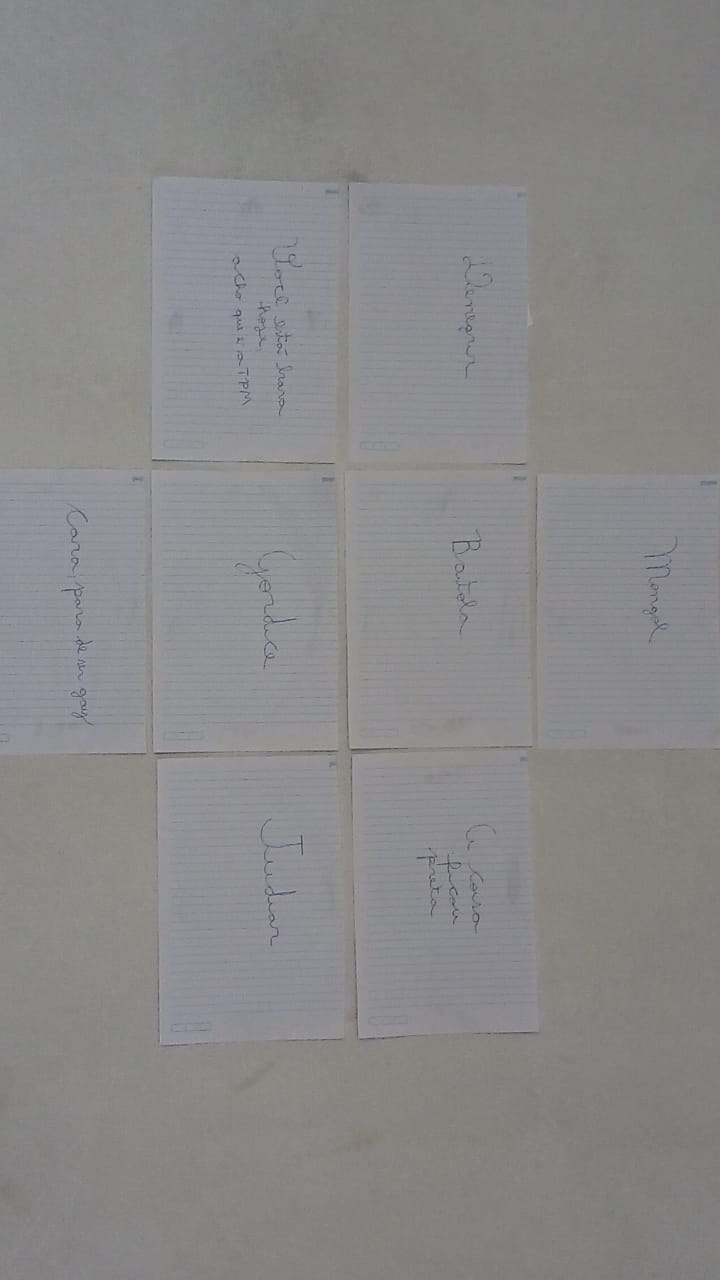 Mongol
Denegrir
Baitola
A coisa
ficou
preta
Você está brava
hoje,
acho que é a TPM
Gordice
Judiar
Cara, para de ser gay